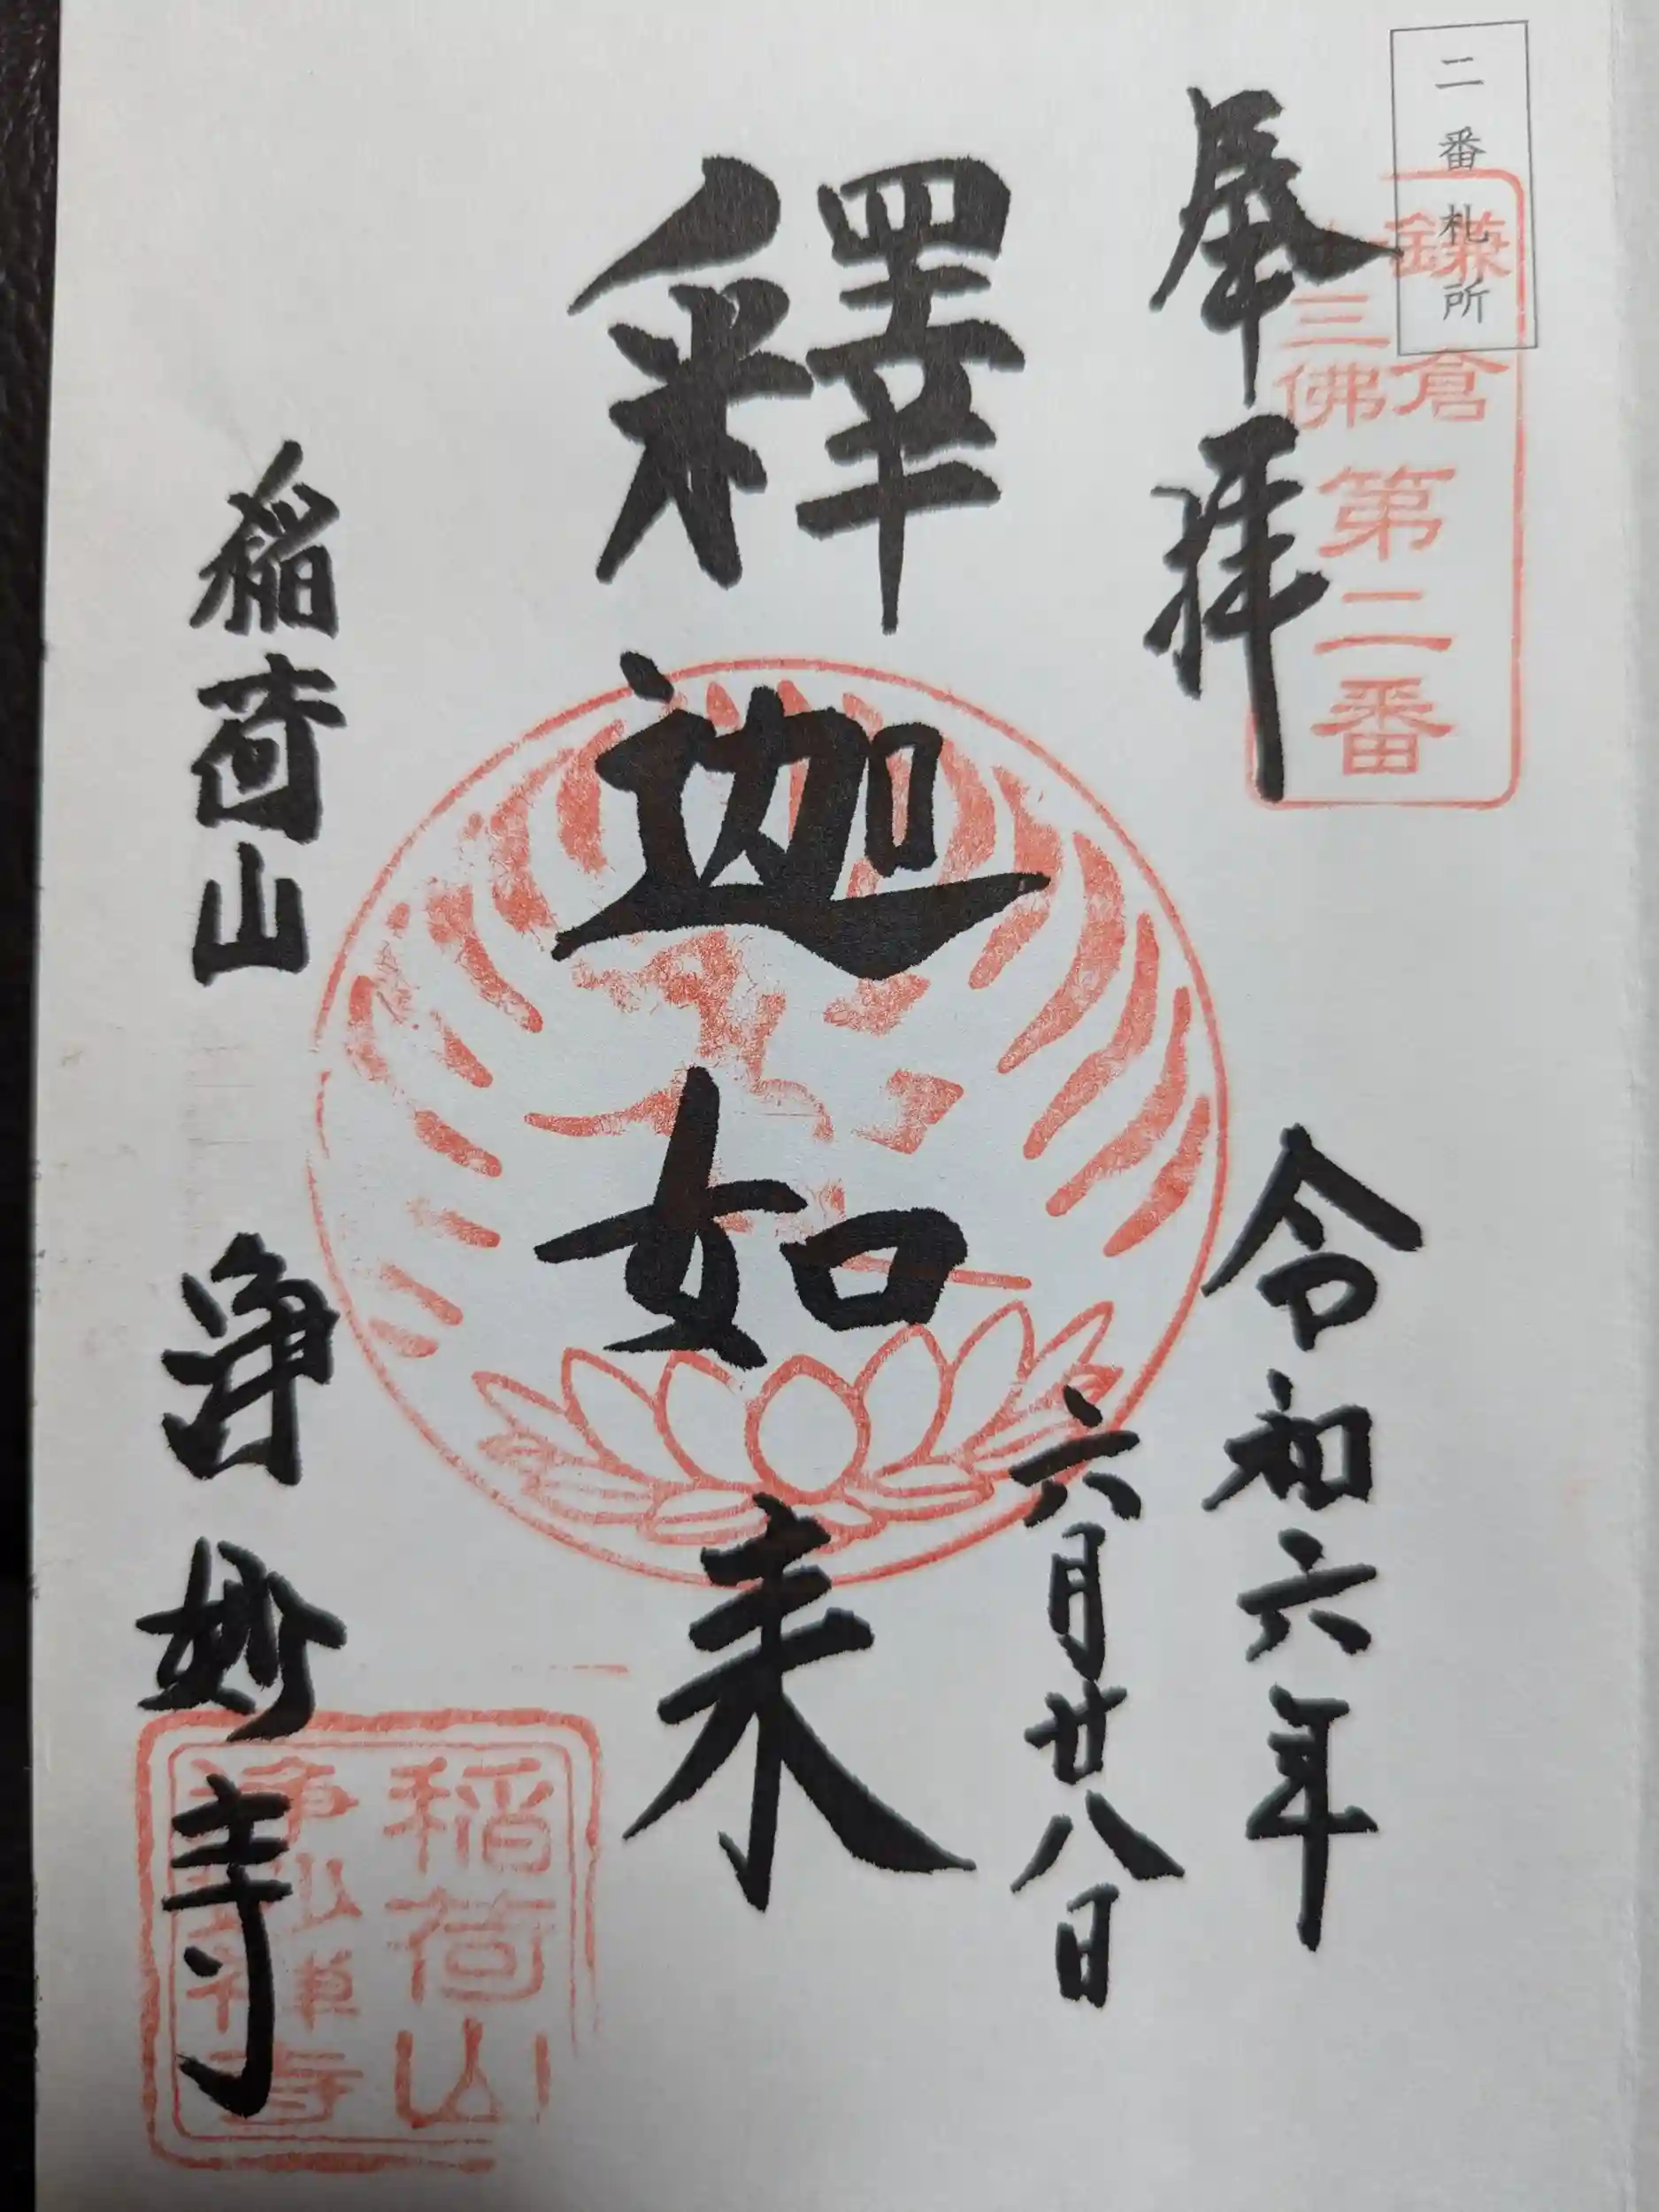 二番札所
鎌倉
十三佛
第二番
奉拝
令和六年
六月廿八日
釋迦如来
稲荷山
淨妙寺
稲荷山
淨妙禅寺